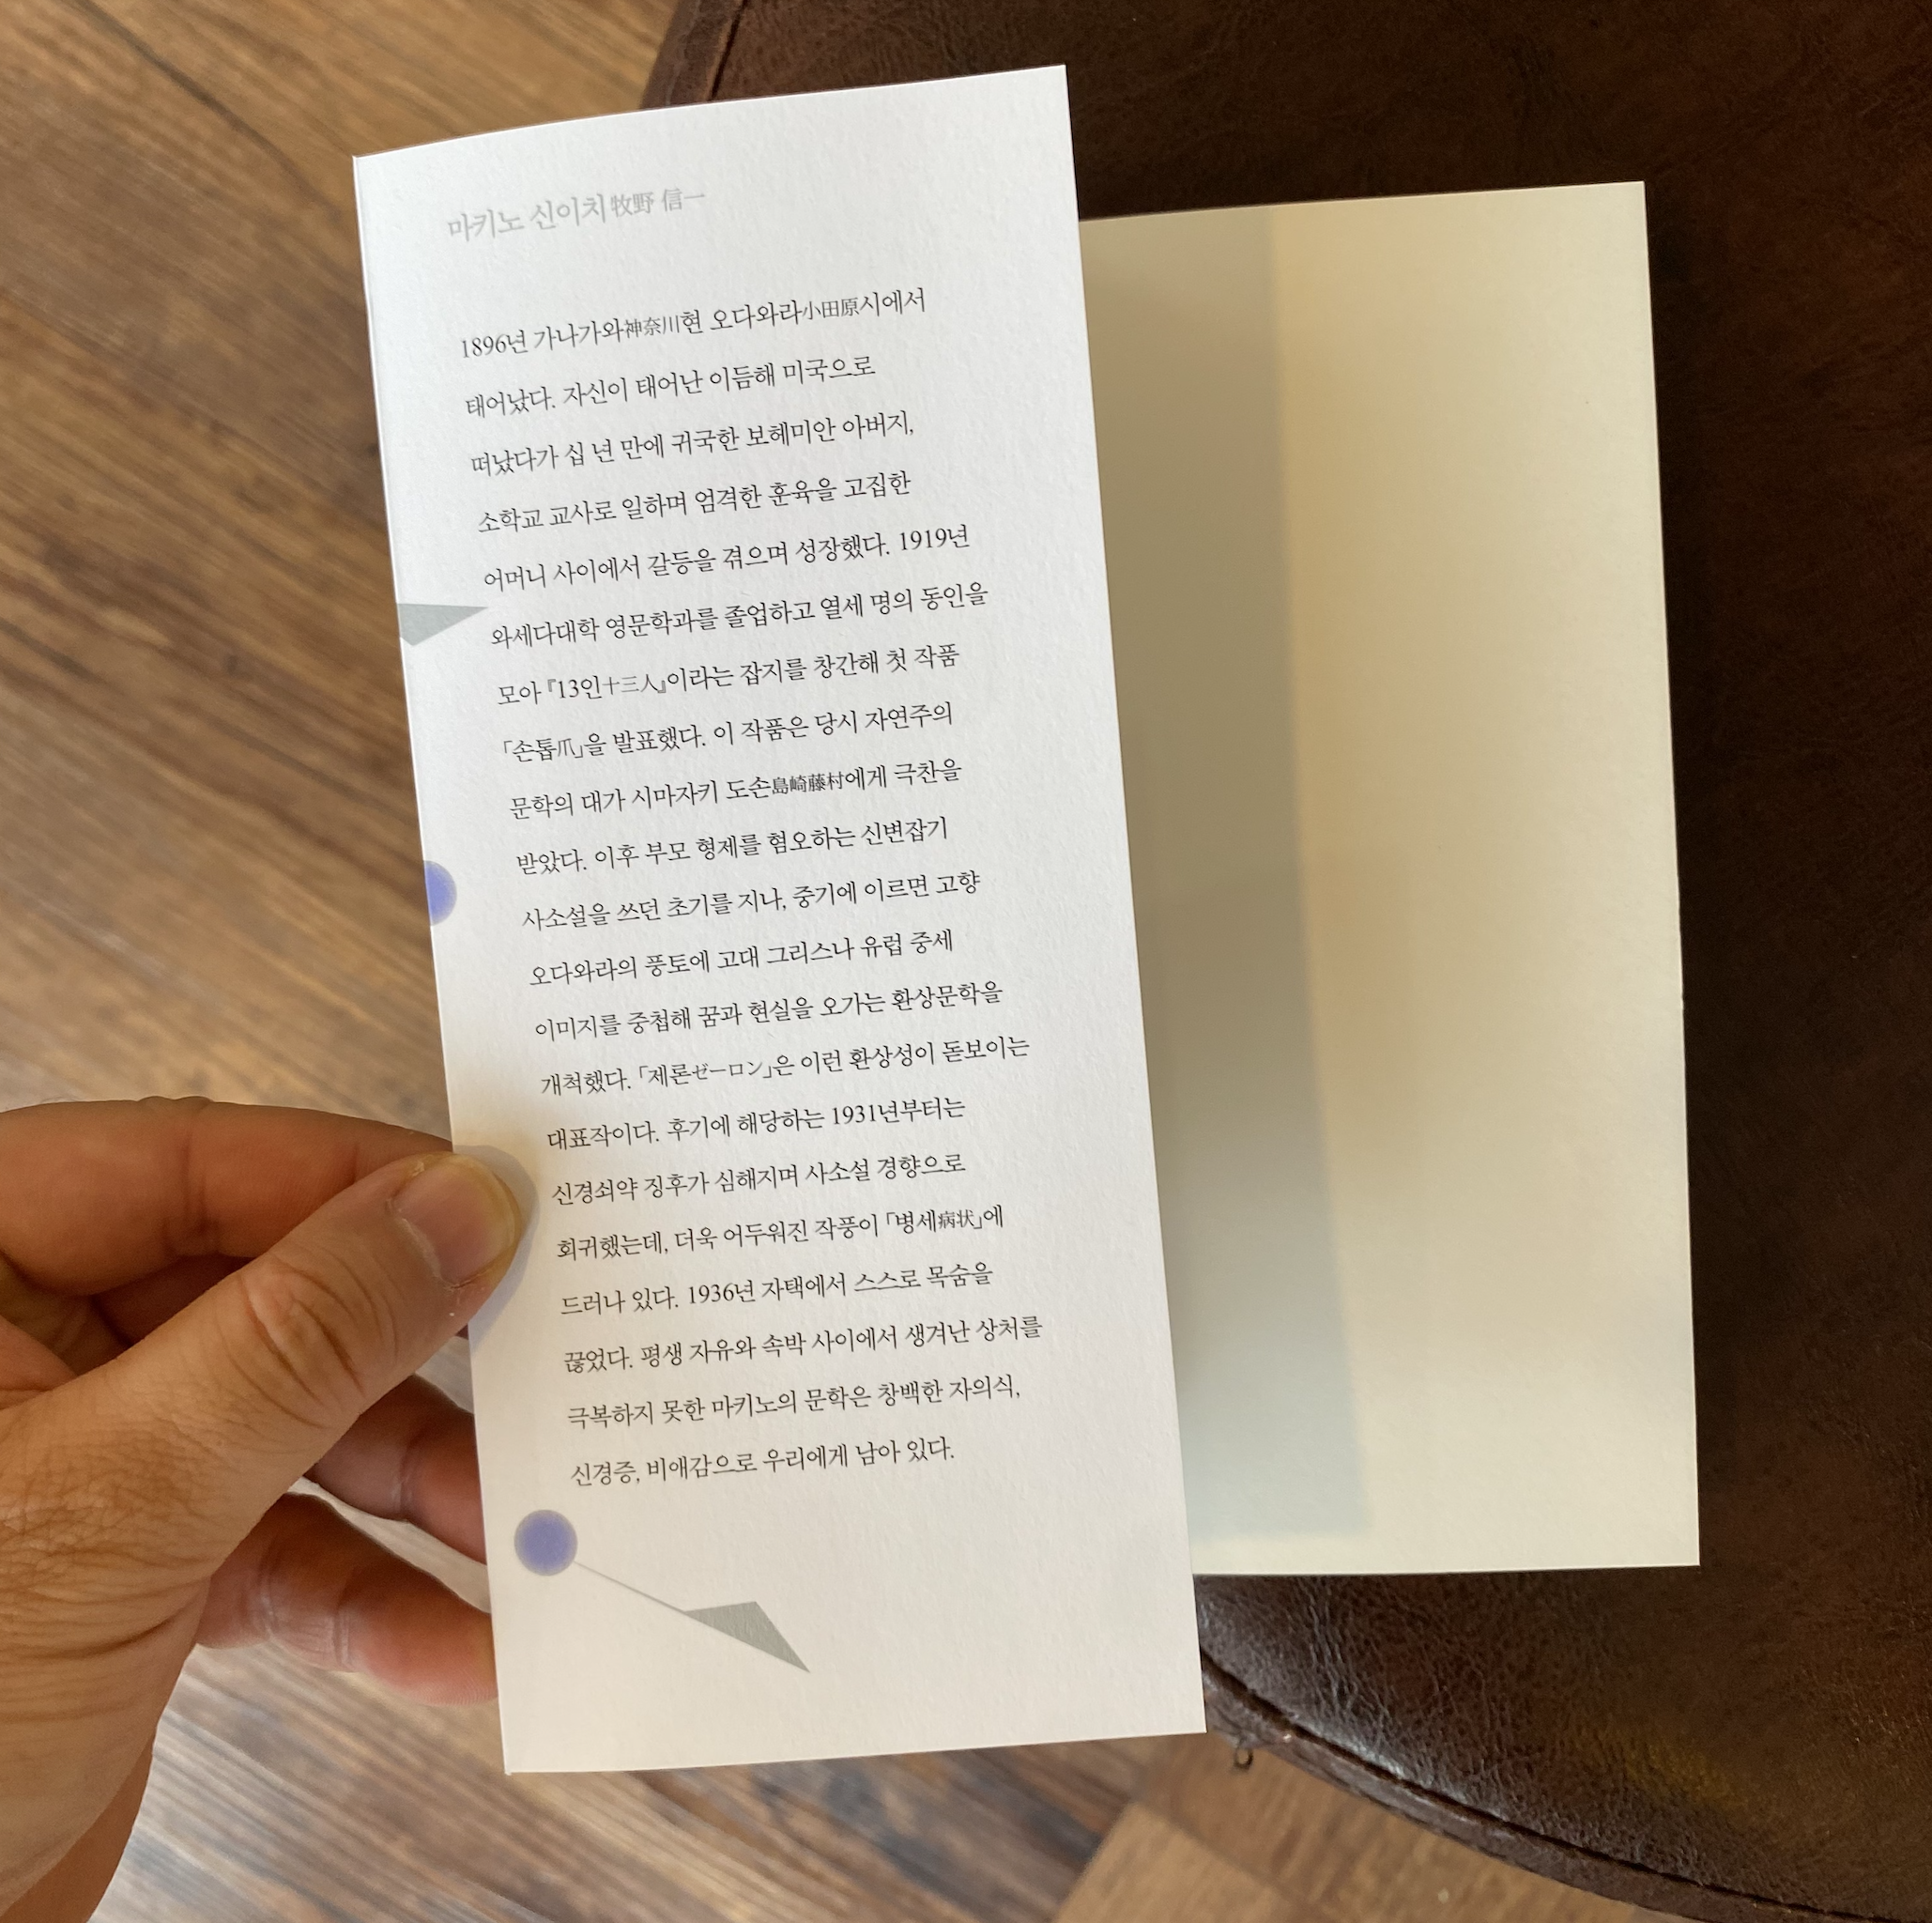 마키노 신이치牧野 信一
1896년 가나가와神奈川현 오다와라小田原시에서
태어났다. 자신이 태어난 이듬해 미국으로
떠났다가 십 년 만에 귀국한 보헤미안 아버지,
소학교 교사로 일하며 엄격한 훈육을 고집한
어머니 사이에서 갈등을 겪으며 성장했다. 1919년
와세다대학 영문학과를 졸업하고 열세 명의 동인을
모아 『13인十三人』이라는 잡지를 창간해 첫 작품
「손톱爪」을 발표했다. 이 작품은 당시 자연주의
문학의 대가 시마자키 도손島崎藤村에게 극찬을
받았다. 이후 부모 형제를 혐오하는 신변잡기
사소설을 쓰던 초기를 지나, 중기에 이르면 고향
오다와라의 풍토에 고대 그리스나 유럽 중세
이미지를 중첩해 꿈과 현실을 오가는 환상문학을
개척했다. 「제론ゼーロン」은 이런 환상성이 돋보이는
대표작이다. 후기에 해당하는 1931년부터는
신경쇠약 징후가 심해지며 사소설 경향으로
회귀했는데, 더욱 어두워진 작풍이 「병세病状」에
드러나 있다. 1936년 자택에서 스스로 목숨을
끊었다. 평생 자유와 속박 사이에서 생겨난 상처를
극복하지 못한 마키노의 문학은 창백한 자의식,
신경증, 비애감으로 우리에게 남아 있다.